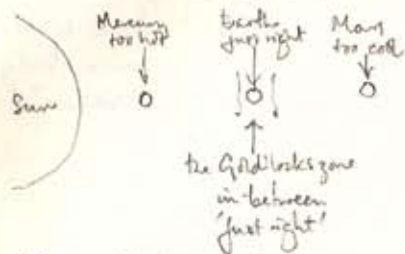 Mercury
too hot
Earth
just right
Mars
too cold
Sun
the Goldilocks zone
in-between
'just right'